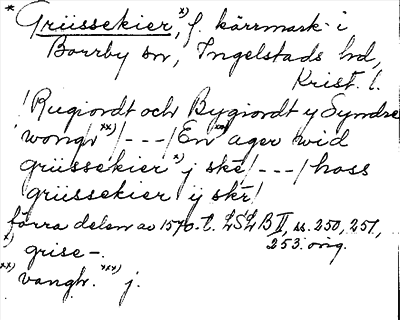 * Grüssekier,ˣ⁾ f. kärrmark i
Borrby sn, Ingelstads hd,
Krist. l.
/Rugiordt och Bygiordt y Syndre
wongh ˣˣ⁾/---/En ˣˣˣ⁾ ager wid
grüssekier ˣ⁾ j skē/---/hoss
grüssekier ÿ skr/
förra delen av 1570-t. LSLB II, ss. 250, 251,
253. orig.
ˣ⁾ grise-.
ˣˣ⁾ vangh. ˣˣˣ⁾ j.